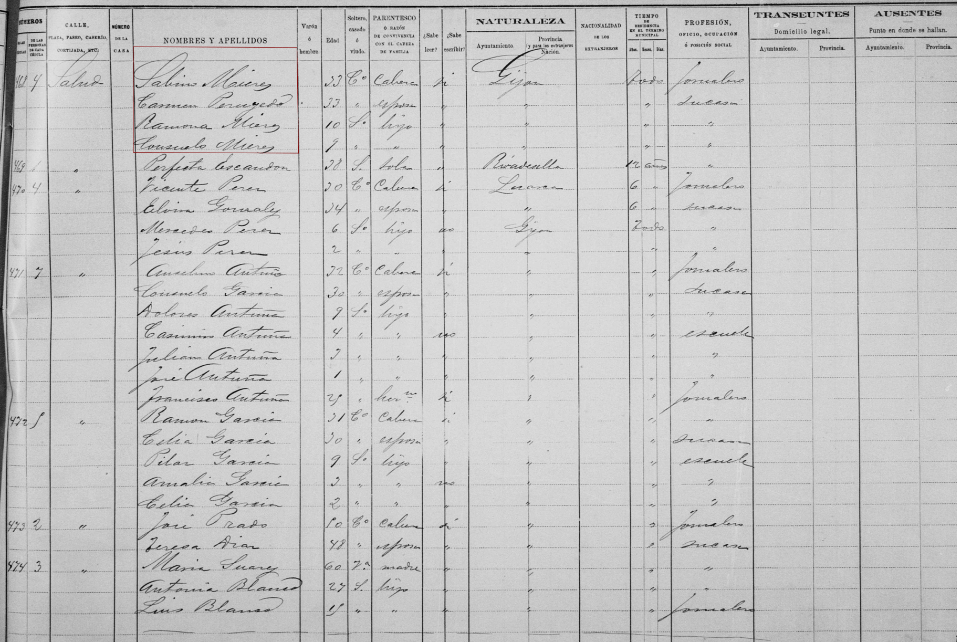 NÚMEROS
DE LAS PERSONAS DE CADA CÉDULA
CALLE,
PLAZA, PASEO, CASERÍA, CORTIJADA, ETC.
NÚMERO DE LA CASA
NOMBRES Y APELLIDOS
Varón ó hembra
Edad
Soltero, casado ó viudo.
PARENTESCO Ó RAZÓN DE CONVIVENCIA CON EL CABEZA DE FAMILIA
¿Sabe leer?
¿Sabe escribir?
NATURALEZA
Ayuntamiento.
Provincia y para los extranjeros Nación.
NACIONALIDAD DE LOS EXTRANJEROS
TIEMPO DE RESIDENCIA EN EL TÉRMINO MUNICIPAL
PROFESIÓN, OFICIO, OCUPACIÓN Ó POSICIÓN SOCIAL
TRANSEUNTES
Domicilio legal.
Ayuntamiento. Provincia.
AUSENTES
Punta en donde se hallan.
Ayuntamiento. Provincia.
468 4 Salud Sabino Mieres 33 Co Cabeza si Gijon Todos Jornalero
Carmen 33 " esposa " " " su casa
Ramona Mieres 10 So hijo " " " "
Consuelo Mieres 9 " " " " " "
469 1 " Perfecta Escandon 38 S. sola " Rivadesella 12 años "
470 4 " Vicente Perez 30 Co Cabeza si Luarca 6 " Jornalero
Elvira Gonzalez 34 " esposa " " 6 " su casa
Mercedes Perez 6 So hijo no Gijon Todos "
Jesús Perez 2 " " " " " "
471 7 " Anselmo Antuña 32 Co Cabeza si " " Jornalero
Consuelo Garcia 30 " esposa " " " su casa
Dolores Antuña 9 So hijo " " " "
Casimiro Antuña 4 " " no " " escuela
Julian Antuña 3 " " " " " "
José Antuña 1 " " " " " "
Francisco Antuña " si " " Jornalero
472 5 " Ramon Garcia 31 Co Cabeza si " " "
Celia Garcia 30 " esposa " " " su casa
Pilar Garcia 9 So hijo " " " escuela
Amalia Garcia 3 " " no " " "
Celia Garcia 2 " " " " " "
473 2 " José Prado 50 Co Cabeza si " " Jornalero
Teresa Diaz 48 " esposa " " " su casa
474 3 " Maria Suarez 60 Va madre " " " "
Antonia Blanco 27 S. hijo " " " "
Luis Blanco " " " " " Jornalero